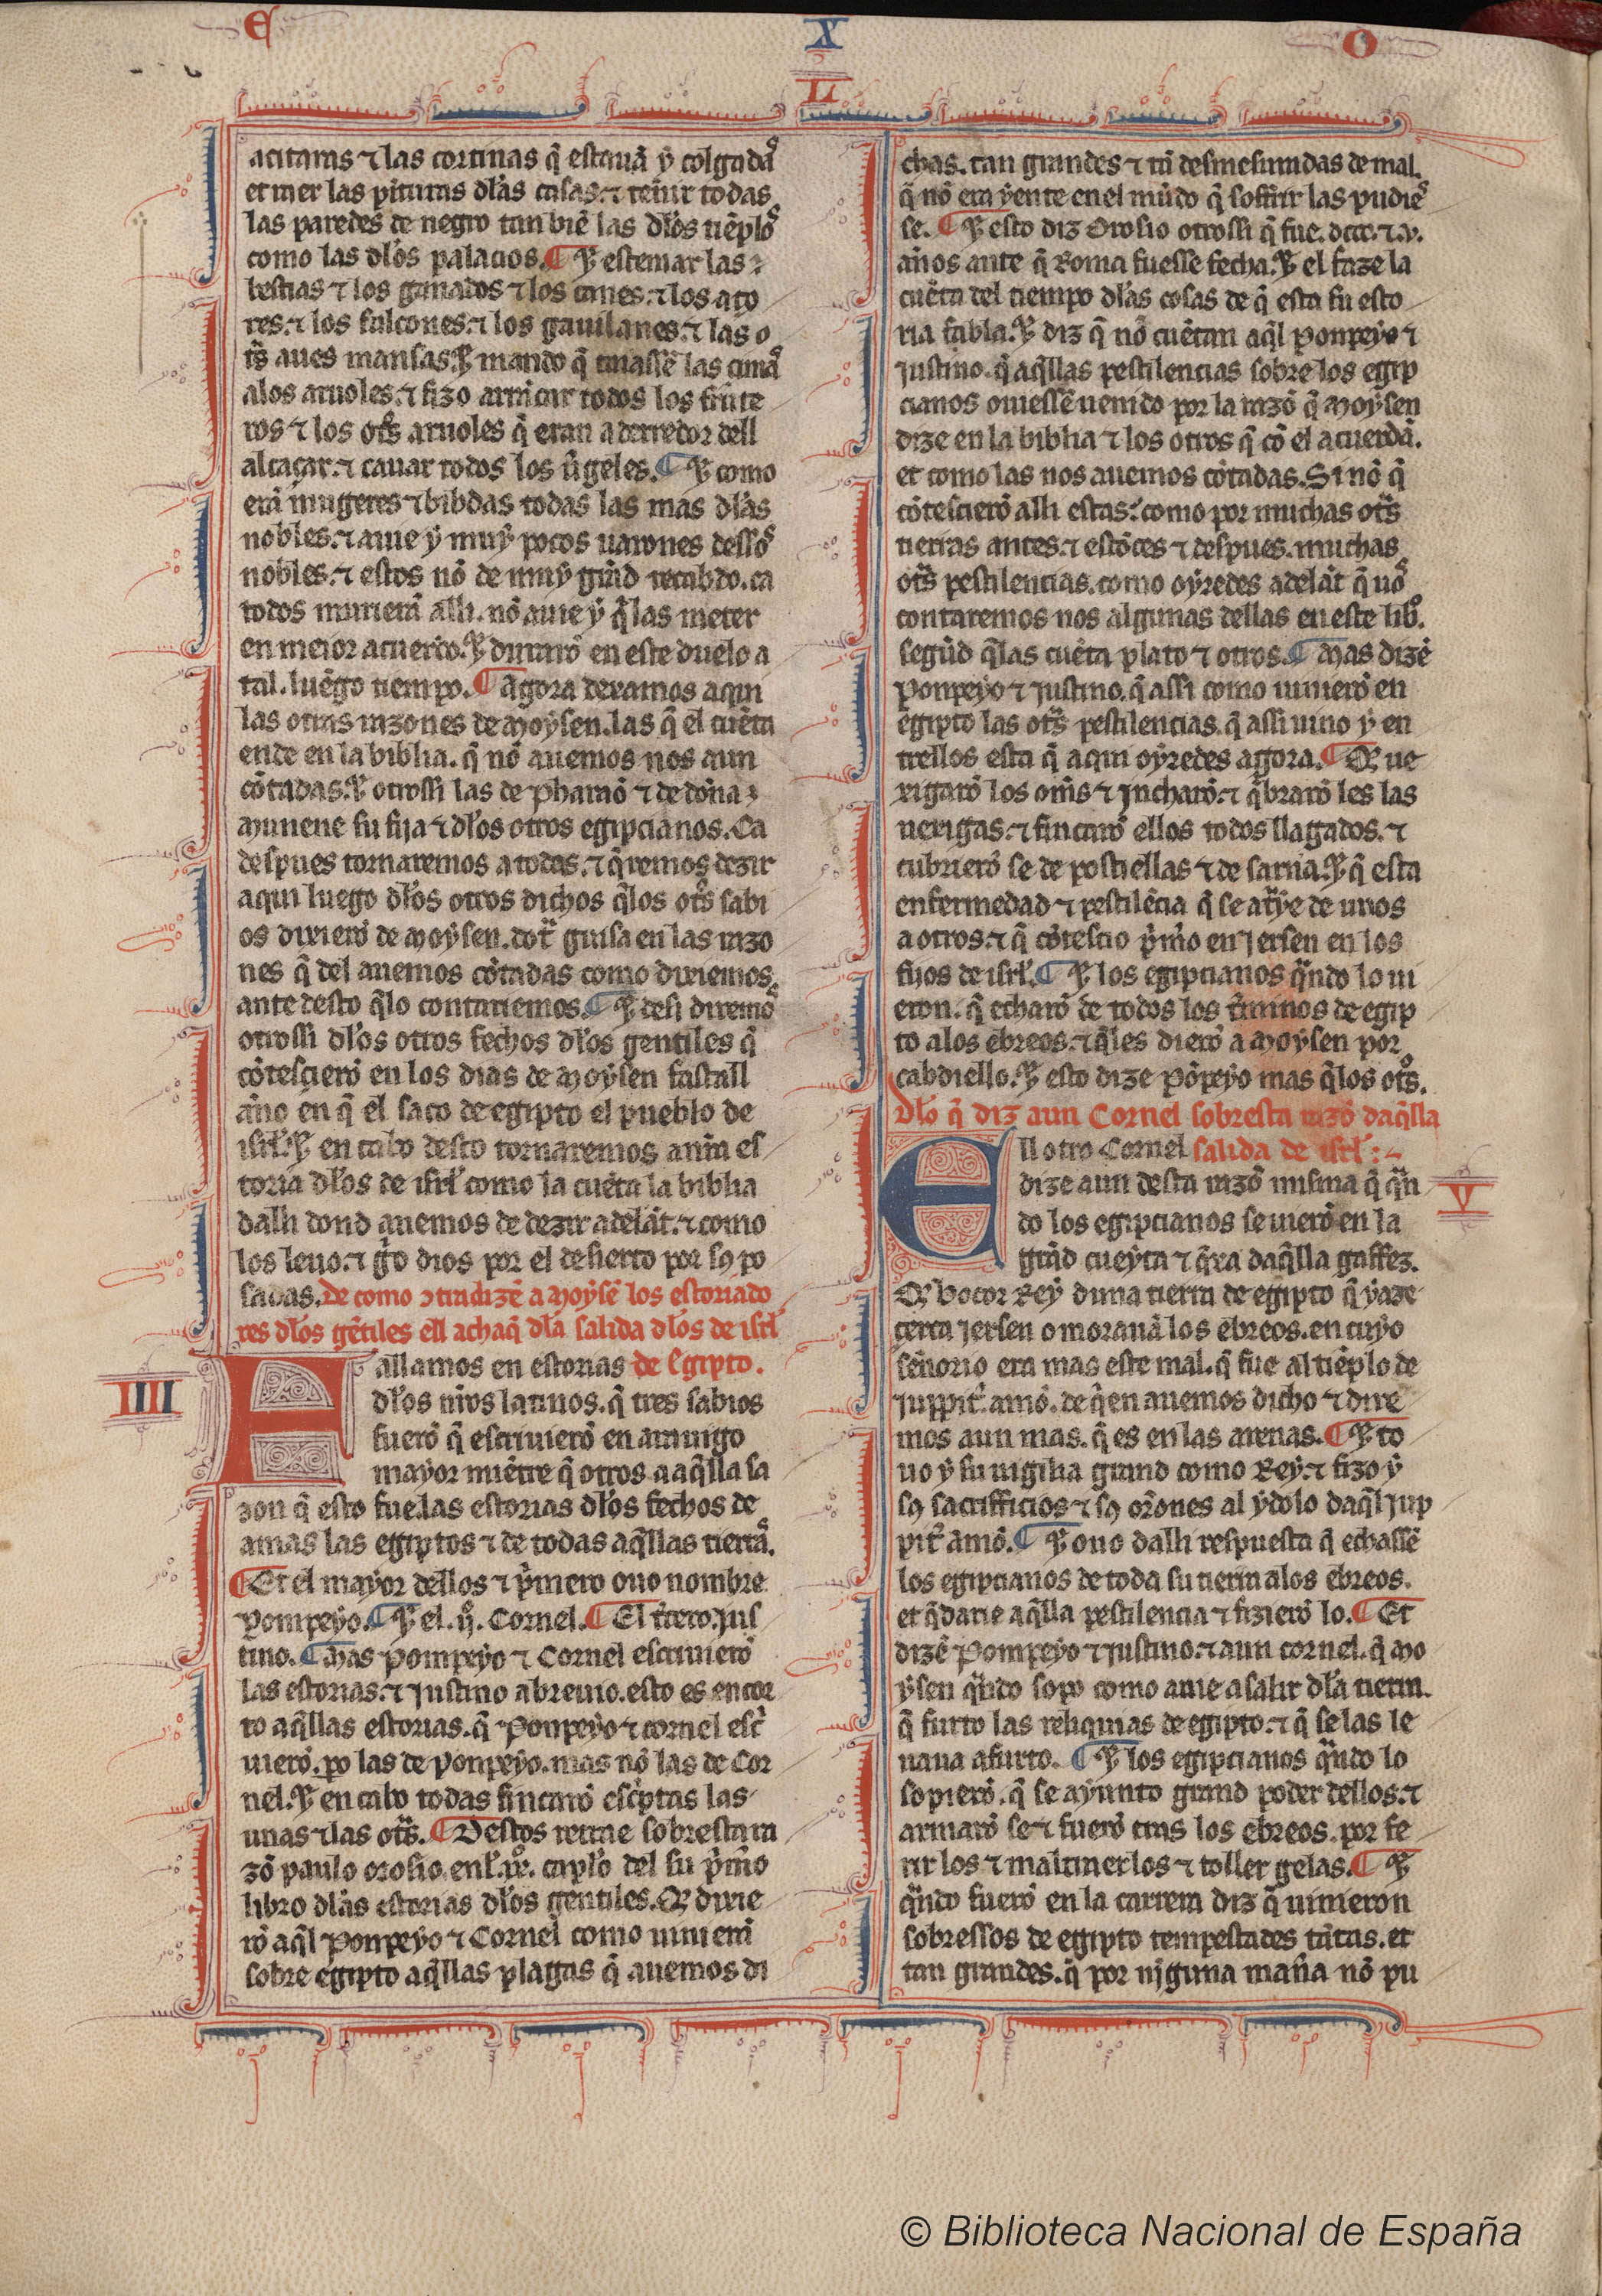 E X L O
acitaras ⁊ las cortinas q̃ estauã y colgadas
et raer las pituras dlas casas. ⁊ tennir todas
las paredes de negro tan biẽ las dlos tẽplos
como las dlos palacios. ¶ ⁊ estemar las
bestias ⁊ los ganados ⁊ los canes. ⁊ los aço
res. ⁊ los falcones. ⁊ los gauilanes. ⁊ las o
tr̃s aues mansas. ⁊ mando q̃ taiassẽ las cimas
alos aruoles. ⁊ fizo arrancar todos los frute
ros ⁊ los otr̃s aruoles q̃ eran aderredor dell
alcaçar. ⁊ cauar todos los ũgeles. ¶ ⁊ como
erã mugeres ⁊ bibdas todas las mas dlas
nobles. ⁊ auie y muy pocos uarones dessos
nobles. ⁊ estos nõ de muy grãd recabdo. ca
todos murierã alli. nõ auie y q̃ las meter
en meior acuerdo. ⁊ duraro en este duelo a
tal. luẽgo tiempo. ¶ Agora dexamos aqui
las otras razones de Moysen. las q̃ el cuẽta
ende en la biblia. q̃ nõ auemos nos aun
cõtadas. ⁊ otrossi las de pharaõ ⁊ de dõna
Munene su fija ⁊ dlos otros egipcianos. Ca
despues tornaremos a todas. ⁊ q̃remos dezir
aqui luego dlos otros dichos q̃ los otr̃s sabi
os dixierõ de Moysen. dotr̃ guisa en las razo
nes q̃ del auemos cõtadas como dixiemos
ante desto q̃ lo contariemos. ¶ ⁊ desi diremos
otrossi dlos otros fechos dlos gentiles q̃
cõtesçierõ en los dias de Moysen fastall
anno en q̃ el saco de egipto el pueblo de
isrl. ⁊ en cabo desto tornaremos anr̃a es
toria dlos de isrl como la cuẽta la biblia
dalli dond auemos de dezir adelãt. ⁊ como
los leuo. ⁊ g̃o dios por el desierto por sꝯ po
sadas. De como ↄtradizẽ a Moysẽ los estoriado
res dlos gẽtiles ell achaq̃ dla salida dlos de isrl
IIII
FAllamos en estorias de Egipto.
dlos nr̃os latinos. q̃ tres sabios
fuerõ q̃ escriuierõ en antuigo
mayor miẽtre q̃ otros. a aq̃lla sa
zon q̃ esto fue. las estorias dlos fechos de
amas las egiptos ⁊ de todas aq̃llas tierras.
¶ Et el mayor dellos ⁊ p̃mero ouo nombre
Pompeyo. ¶ ⁊ el. ijº. Cornel. ¶ El t̃cero. Jus
tino. ¶ Mas Pompeyo ⁊ Cornel escriuierõ
las estorias. ⁊ Justino abreuio. esto es en cor
to aq̃llas estorias. q̃ Ponpeyo ⁊ cornel esc̃
uierõ. po las de Ponpeyo. mas nõ las de Cor
nel. ⁊ en cabo todas fincarõ esc̃ptas las
unas ⁊ las otr̃s. ¶ Destos retrae sobresta ra
zõ paulo orosio. enl. xº. capl̃o del su p̃mo
libro dlas estorias dlos gentiles. Q̃ dixie
rõ aq̃l Ponpeyo ⁊ Cornel como uinierã
sobre egipto aq̃llas plagas q̃ auemos di
chas. tan grandes ⁊ tã desmesuradas de mal.
q̃ nõ era yente en el mũdo q̃ soffrir las pudies
se. ¶ ⁊ esto diz Orosio otrossi q̃ fue. dccc. ⁊. v.
annos ante q̃ Roma fuesse fecha. ⁊ el faze la
cuẽta del tiempo dlas cosas de q̃ esta su esto
ria fabla. ⁊ diz q̃ nõ cuẽtan aq̃l Ponpeyo ⁊
Justino. q̃ aq̃llas pestilencias sobre los egip
cianos ouiessẽ uenido por la razõ q̃ Moysen
dize en la biblia ⁊ los otros q̃ cõ el acuerdã.
et como las nos auemos cõtadas. Si nõ q̃
cõtescierõ alli estas. como por muchas otr̃s
tierras antes. ⁊ estõces ⁊ despues. muchas
otr̃s pestilencias. como oyredes adelãt q̃ uos
contaremos nos algunas dellas en este libº.
segũd q̃ las cuẽta plato ⁊ otros. ¶ Mas dizẽ
Ponpeyo ⁊ Justino. q̃ assi como uinierõ en
egipto las otr̃s pestilencias. q̃ assi uino y en
trellos esta q̃ aqui oyredes agora. ¶ Q̃ ue
xigarõ los om̃s ⁊ Jncharõ. ⁊ q̃brarõ les las
uexigas. ⁊ fincarõ ellos todos llagados. ⁊
cubrierõ se de postiellas ⁊ de sarna. ⁊ q̃ esta
enfermedad ⁊ pestilẽcia q̃ se atr̃ye de unos
a otros. ⁊ q̃ cõtescio p̃mo en Jersen en los
fijos de isrl. ¶ ⁊ los egipcianos q̃ndo lo ui
eron. q̃ echarõ de todos los t̃minos de egip
to alos ebreos. ⁊ q̃ les dierõ a Moysen por
cabdiello. ⁊ esto dize Põpeyo mas q̃ los otr̃s.
Dlo q̃ diz aun Cornel sobresta razõ daq̃lla
Ell otro Cornel salida de isrl :~
V
dize aun desta razõ misma q̃ q̃n
do los egipcianos se uierõ en la
grãd cueyta ⁊ q̃xa daq̃lla gaffez.
Q̃ Bocor Rey duna tierra de egipto q̃ yaze
çerca Jersen o morauã los ebreos. en cuyo
sennorio era mas este mal. q̃ fue al tẽplo de
Juppit̃. amõ. de q̃en auemos dicho ⁊ dire
mos aun mas. q̃ es en las arenas. ¶ ⁊ to
uo y su uigilia grand como Rey. ⁊ fizo y
sꝯ sacrifficios ⁊ sꝯ or̃ones al ydolo daq̃l Jup
pit̃ amõ. ¶ ⁊ ouo dalli respuesta q̃ echassẽ
los egipcianos de toda su tierra alos ebreos.
et q̃darie aq̃lla pestilencia ⁊ fizierõ lo. ¶ Et
dizẽ Pompeyo ⁊ Justino. ⁊ aun cornel. q̃ Mo
ysen q̃ndo sopo como auie a salir dla tierra.
q̃ furto las reliquias de egipto. ⁊ q̃ se las le
uaua a furto. ¶ ⁊ los egipcianos q̃ndo lo
sopierõ. q̃ se ayunto grand poder dellos. ⁊
armarõ se ⁊ fuerõ tras los ebreos. por fe
rir los ⁊ maltraerlos ⁊ toller gelas. ¶ ⁊
q̃ndo fuerõ en la carrera diz q̃ uinieron
sobressos de egipto tempestades tãtas. et
tan grandes. q̃ por njguna man̄a nõ pu
© Biblioteca Nacional de España